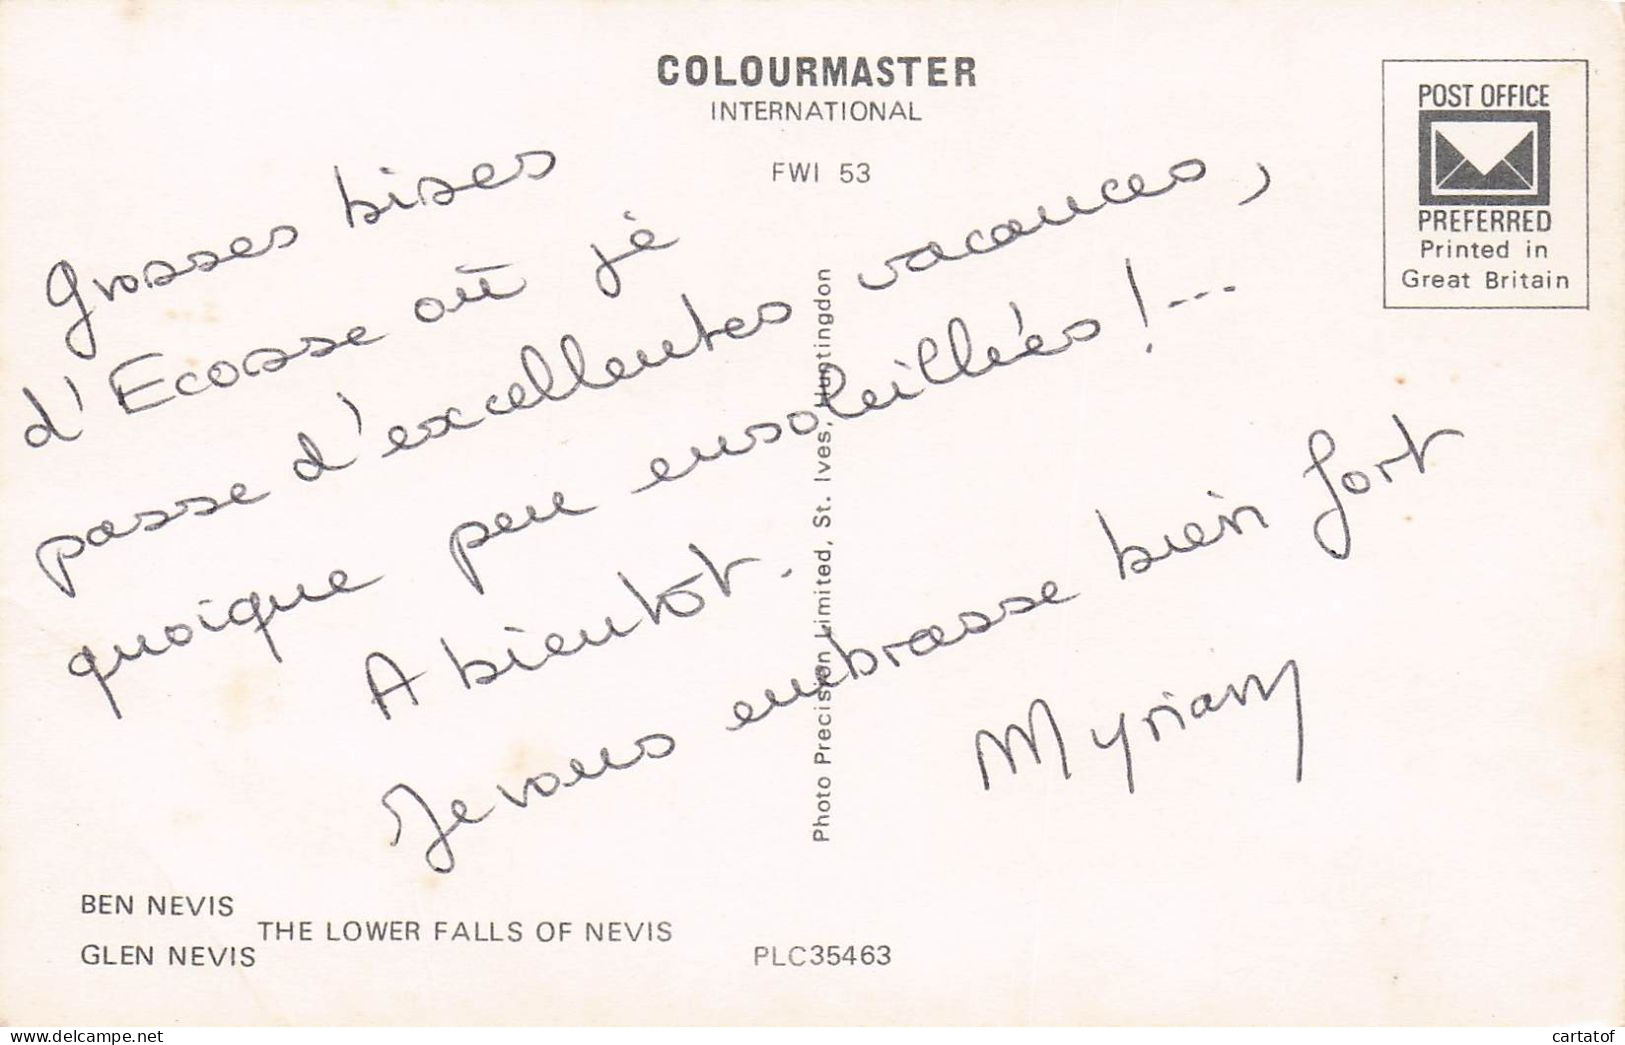 COLOURMASTER
INTERNATIONAL
FWI 53
POST OFFICE
PREFERRED
Printed in
Great Britain
Grosses bises
d'Ecosse où je
passe d'excellentes vacances,
quoique peu ensoleillées !...
A bientôt.
Je vous embrasse bien fort
Myriam
Photo Precision Limited, St. Ives, Huntingdon
BEN NEVIS
THE LOWER FALLS OF NEVIS
GLEN NEVIS
PLC35463
delcampe.net
cartatof